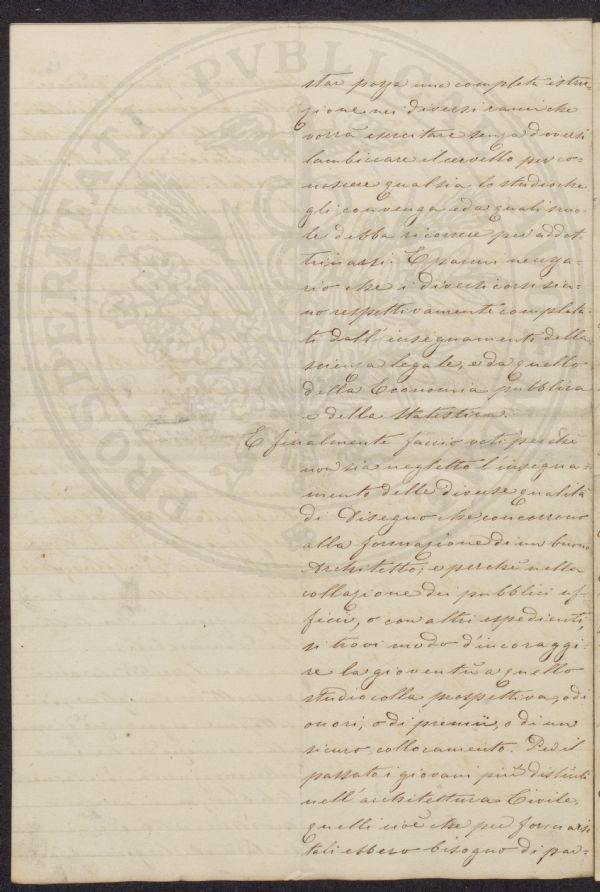 star possa una completa istru-
zione nei diversi rami che
vorrà esercitare senza doversi
lambiccare il cervello per co-
noscere qual sia lo studio che
gli convenga e da quali scuo-
le debba ricorrere per addot-
trinarsi. E parmi necessa-
rio che i diversi corsi sia-
no respettivamente completa-
ti dall'insegnamento della
scienza legale, e da quello
della Economia pubblica
e della Statistica.
E finalmente faccio voti perché
non sia negletto l'insegna-
mento delle diverse qualità
di Disegno che concorrono
alla formazione di un buono
Architetto; e perché nella
collazione dei pubblici uf-
ficii, o con altri espedienti
si trovi modo d'incoraggi-
re la gioventù a quello
studio colla prospettiva, o di
onori, o di premii, o di un
sicuro collocamento. Per il
passato i giovani più distinti
nell'architettura Civile,
quelli cioè che per formarsi
tali ebbero bisogno di par=
PROSPERITATI PVBLIC